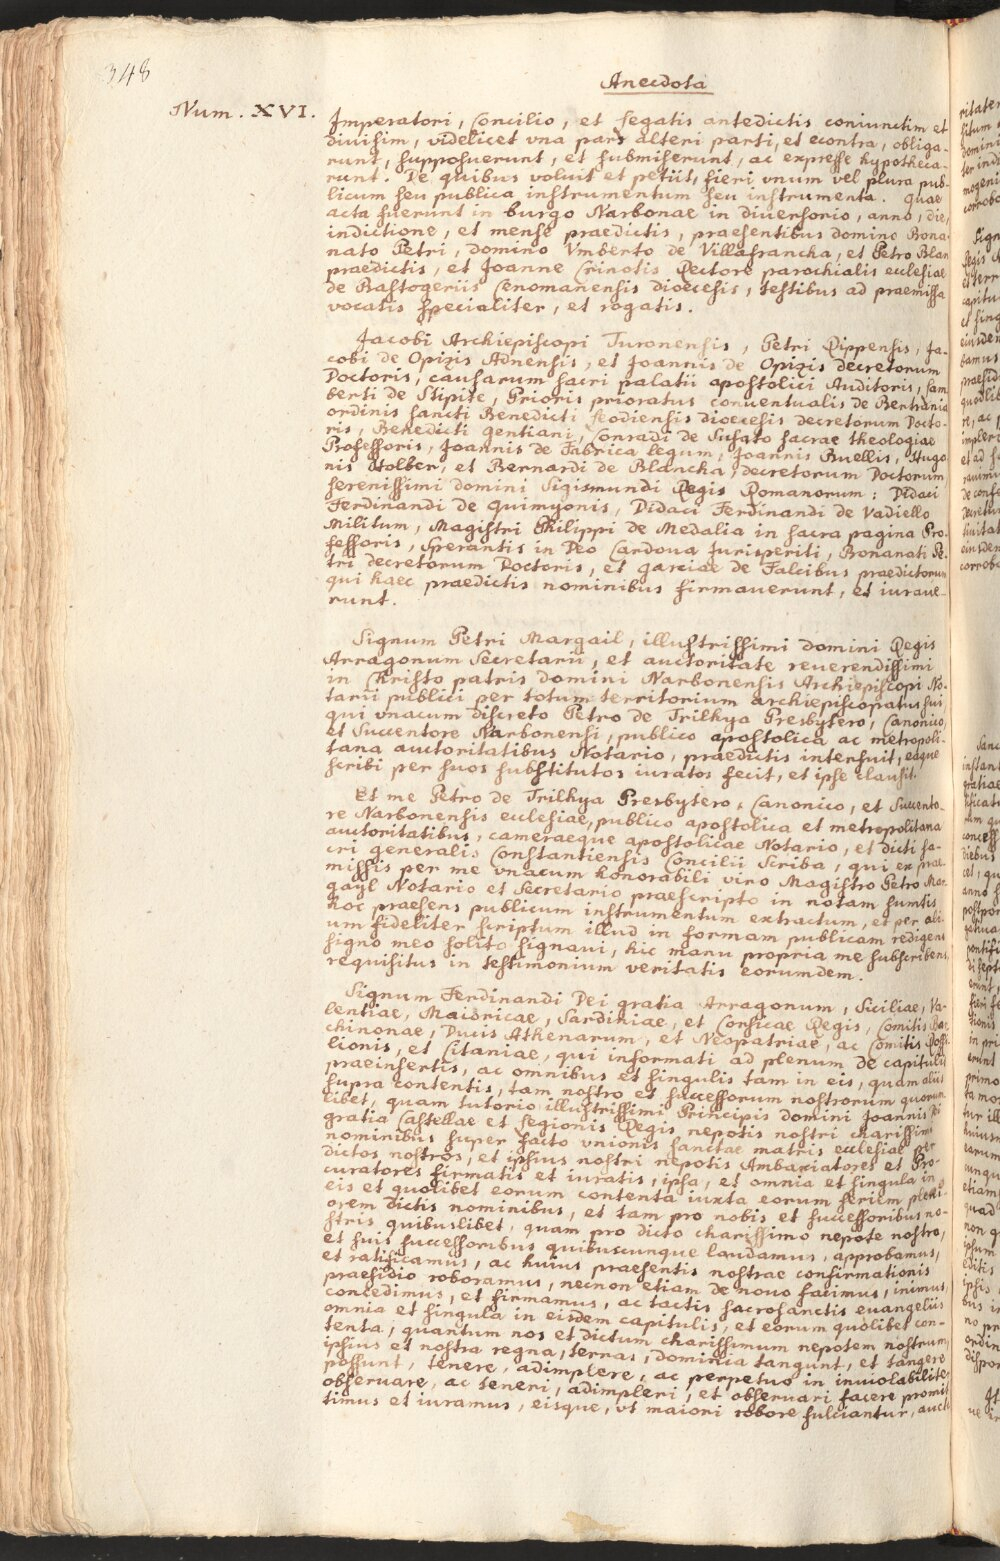 348
Anecdota
Num. XVI.
Imperatori, Concilio, et Legatis antedictis coniunctim et
divisim, videlicet vna pars alteri parti, et econtra, obliga-
runt, supposuerunt, et submiserunt, ac expresse hypotheca-
runt. De quibus voluit et petiit, fieri vnum vel plura pub-
licum seu publica instrumentum seu instrumenta. Quae
acta fuerunt in burgo Narbonae in diuersorio, anno, die,
indictione, et mense praedictis, praesentibus domino Bona-
nato Petri, domino Vmberto de Villafrancha, et Petro Blan
praedictis, et Joanne Crinotis Rectore parochialis ecclesiae
de Bastogeriis Cenomanensis dioecesis, testibus ad praemissa
vocatis specialiter, et rogatis.
Jacobi Archiepiscopi Turonensis, Petri Rippensis, Ja-
cobi de Opizis Adnensis, et Joannis de Opizis decretorum
Doctoris, causarum sacri palatii apostolici Auditoris, Lam
berti de Stipite, Prioris prioratus conuentualis de Bertrinia
ordinis sancti Benedicti Leodiensis dioecesis decretorum Docto-
ris, Benedicti Gentiani, Conradi de Susato sacrae theologiae
Professoris, Joannis de Fabrica legum, Joannis Ruellis, Hugo
nis Holber, et Bernardi de Blancha, decretorum Doctorum
serenissimi domini Sigismundi Regis Romanorum: Didaci
Ferdinandi de Quimyonis, Didaci Ferdinandi de Vadiello
Militum, Magistri Philippi de Medalia in sacra pagina Pro-
fessoris, Sperantis in Deo Cardoua Jurisperiti, Bonanati Pe-
tri decretorum Doctoris, et Garciae de Falcibus praedictorum
qui haec praedictis nominibus firmauerunt, et iuraue-
runt.
Signum Petri Margail, illustrissimi domini Regis
Arragonum Secretarii, et auctoritate reuerendissimi
in Christo patris domini Narbonensis Archiepiscopi No-
tarii publici per totum territorium archiepiscopatus sui,
qui vnacum discreto Petro de Trilhya Presbytero, Canonico,
et Succentore Narbonensi, publico apostolica ac metropoli-
tana auctoritatibus Notario, praedictis interfuit, eaque
scribi per suos substitutos iuratos fecit, et ipse clausit.
Et me Petro de Trilhya Presbytero, Canonico, et Succento-
re Narbonensis ecclesiae, publico apostolica et metropolitana
auctoritatibus, cameraeque apostolicae Notario, et dicti sa-
cri generalis Constantiensis Concilii Scriba, qui ex prae-
missis per me vnacum honorabili viro Magistro Petro Mar-
gayl Notario et Secretario praescripto in notam sumtis
hoc praesens publicum instrumentum extractum, et per ali-
um fideliter scriptum illud in formam publicam redigens
signo meo solito signaui, hic manu propria me subscribens,
requisitus in testimonium veritatis eorumdem.
Signum Ferdinandi Dei gratia Arragonum, Siciliae, Va-
lentiae, Maioricae, Sardiniae, et Corsicae Regis, Comitis Bar-
chinonae, Ducis Athenarum, et Neopatriae, ac Comitis Rossi-
lionis, et Citaniae, qui informati ad plenum de capitulis
praeinsertis, ac omnibus et singulis tam in eis, quam aliis
supra contentis, tam nostro et successorum nostrorum quorum
libet, quam tutorio illustrissimi Principis domini Joannis Dei
gratia Castellae et Legionis Regis nepotis nostri charissimi
nominibus super facto vnionis sanctae matris ecclesiae per
dictos nostros, et ipsius nostri nepotis Ambaxiatores et Pro-
curatores firmatis et iuratis, ipsa, et omnia et singula in
eis et quolibet eorum contenta iuxta eorum seriem pleni-
orem dictis nominibus, et tam pro nobis et successoribus no-
stris quibuslibet, quam pro dicto charissimo nepote nostro,
et suis successoribus quibuscunque laudamus, approbamus,
et ratificamus, ac huius praesentis nostrae confirmationis
praesidio roboramus, necnon etiam de nouo facimus, inimus,
concedimus, et firmamus, ac tactis sacrosanctis euangeliis
omnia et singula in eisdem capitulis, et eorum quolibet con-
tenta, quantum nos et dictum charissimum nepotem nostrum,
ipsius et nostra regna, terras, dominia tangunt, et tangere
possunt, tenere, adimplere, ac perpetuo in inuiolabiliter
obseruare, ac teneri, adimpleri, et obseruari facere promit
timus et iuramus, eisque, vt maiori robore fulciantur, auct